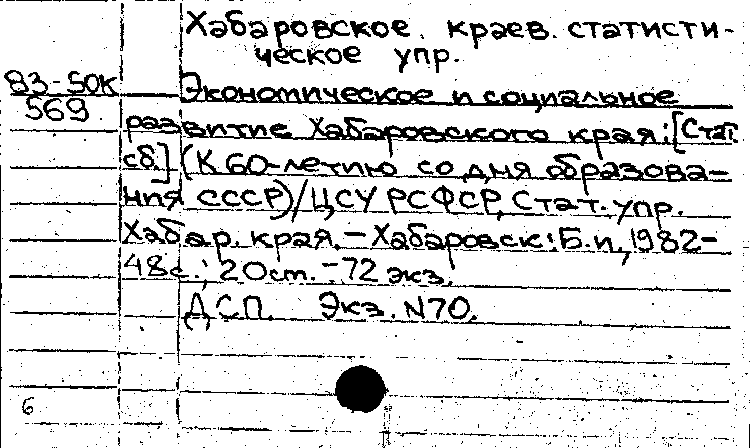 Хабаровское. краев. статисти-
ческое упр.
83-50К
569
Экономическое и социальное
развитие Хабаровского края: [Стат.
сб.] (К 60-летию со дня образова-
ния СССР)/ЦСУ РСФСР, Стат. упр.
Хабар. края. - Хабаровск: Б.и., 1982-
48с.; 20ст. - 72 экз.
ДСП. Экз. N70.
6